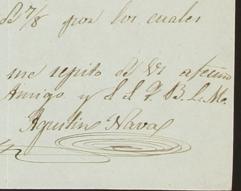 B 7/8 por los cuales
me repito de V. afectmo
Amigo y S. S. Q. B. L. M.
Agustin Nava